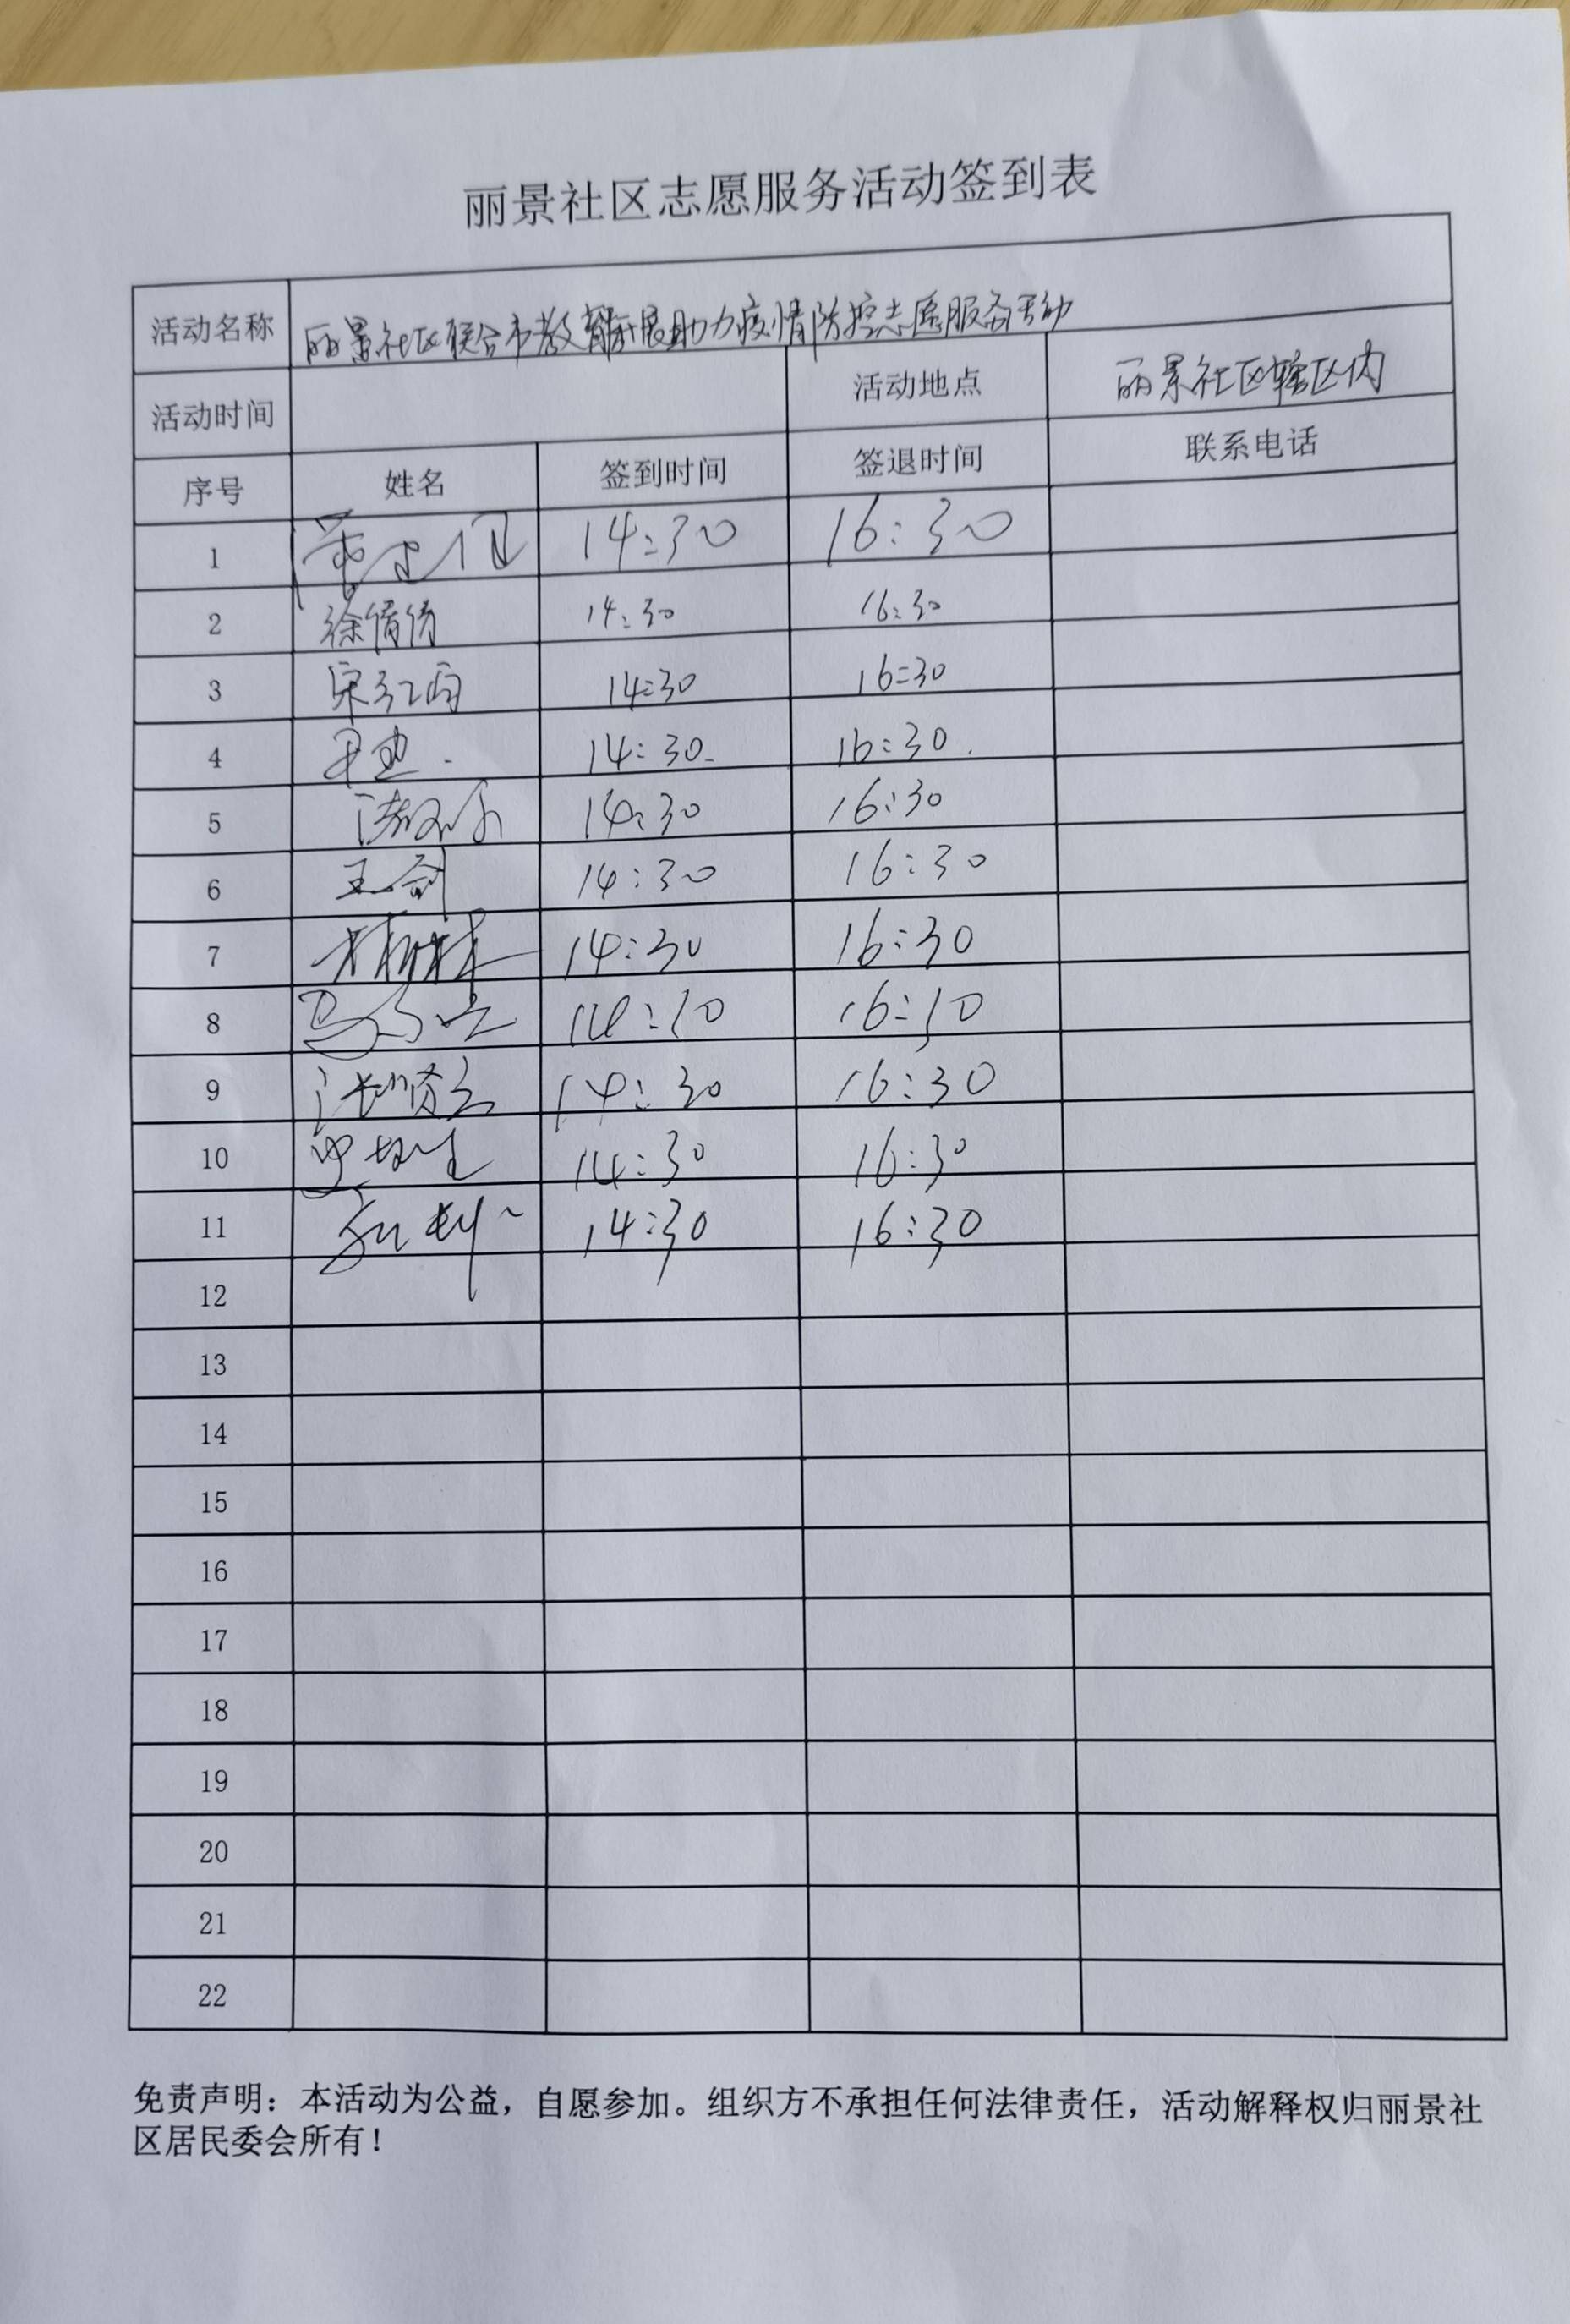 丽景社区志愿服务活动签到表
活动名称 丽景社区联合市教育局开展助力疫情防控志愿服务活动
活动时间 活动地点 丽景社区辖区内
序号 姓名 签到时间 签退时间 联系电话
1 14:30 16:30
2 徐倩倩 14:30 16:30
3 宋红雨 14:30 16:30
4 14:30 16:30
5 14:30 16:30
6 王剑 14:30 16:30
7 14:30 16:30
8
9 14:30 16:30
10 14:30 16:30
11 14:30 16:30
12
13
14
15
16
17
18
19
20
21
22
免责声明：本活动为公益，自愿参加。组织方不承担任何法律责任，活动解释权归丽景社
区居民委会所有！